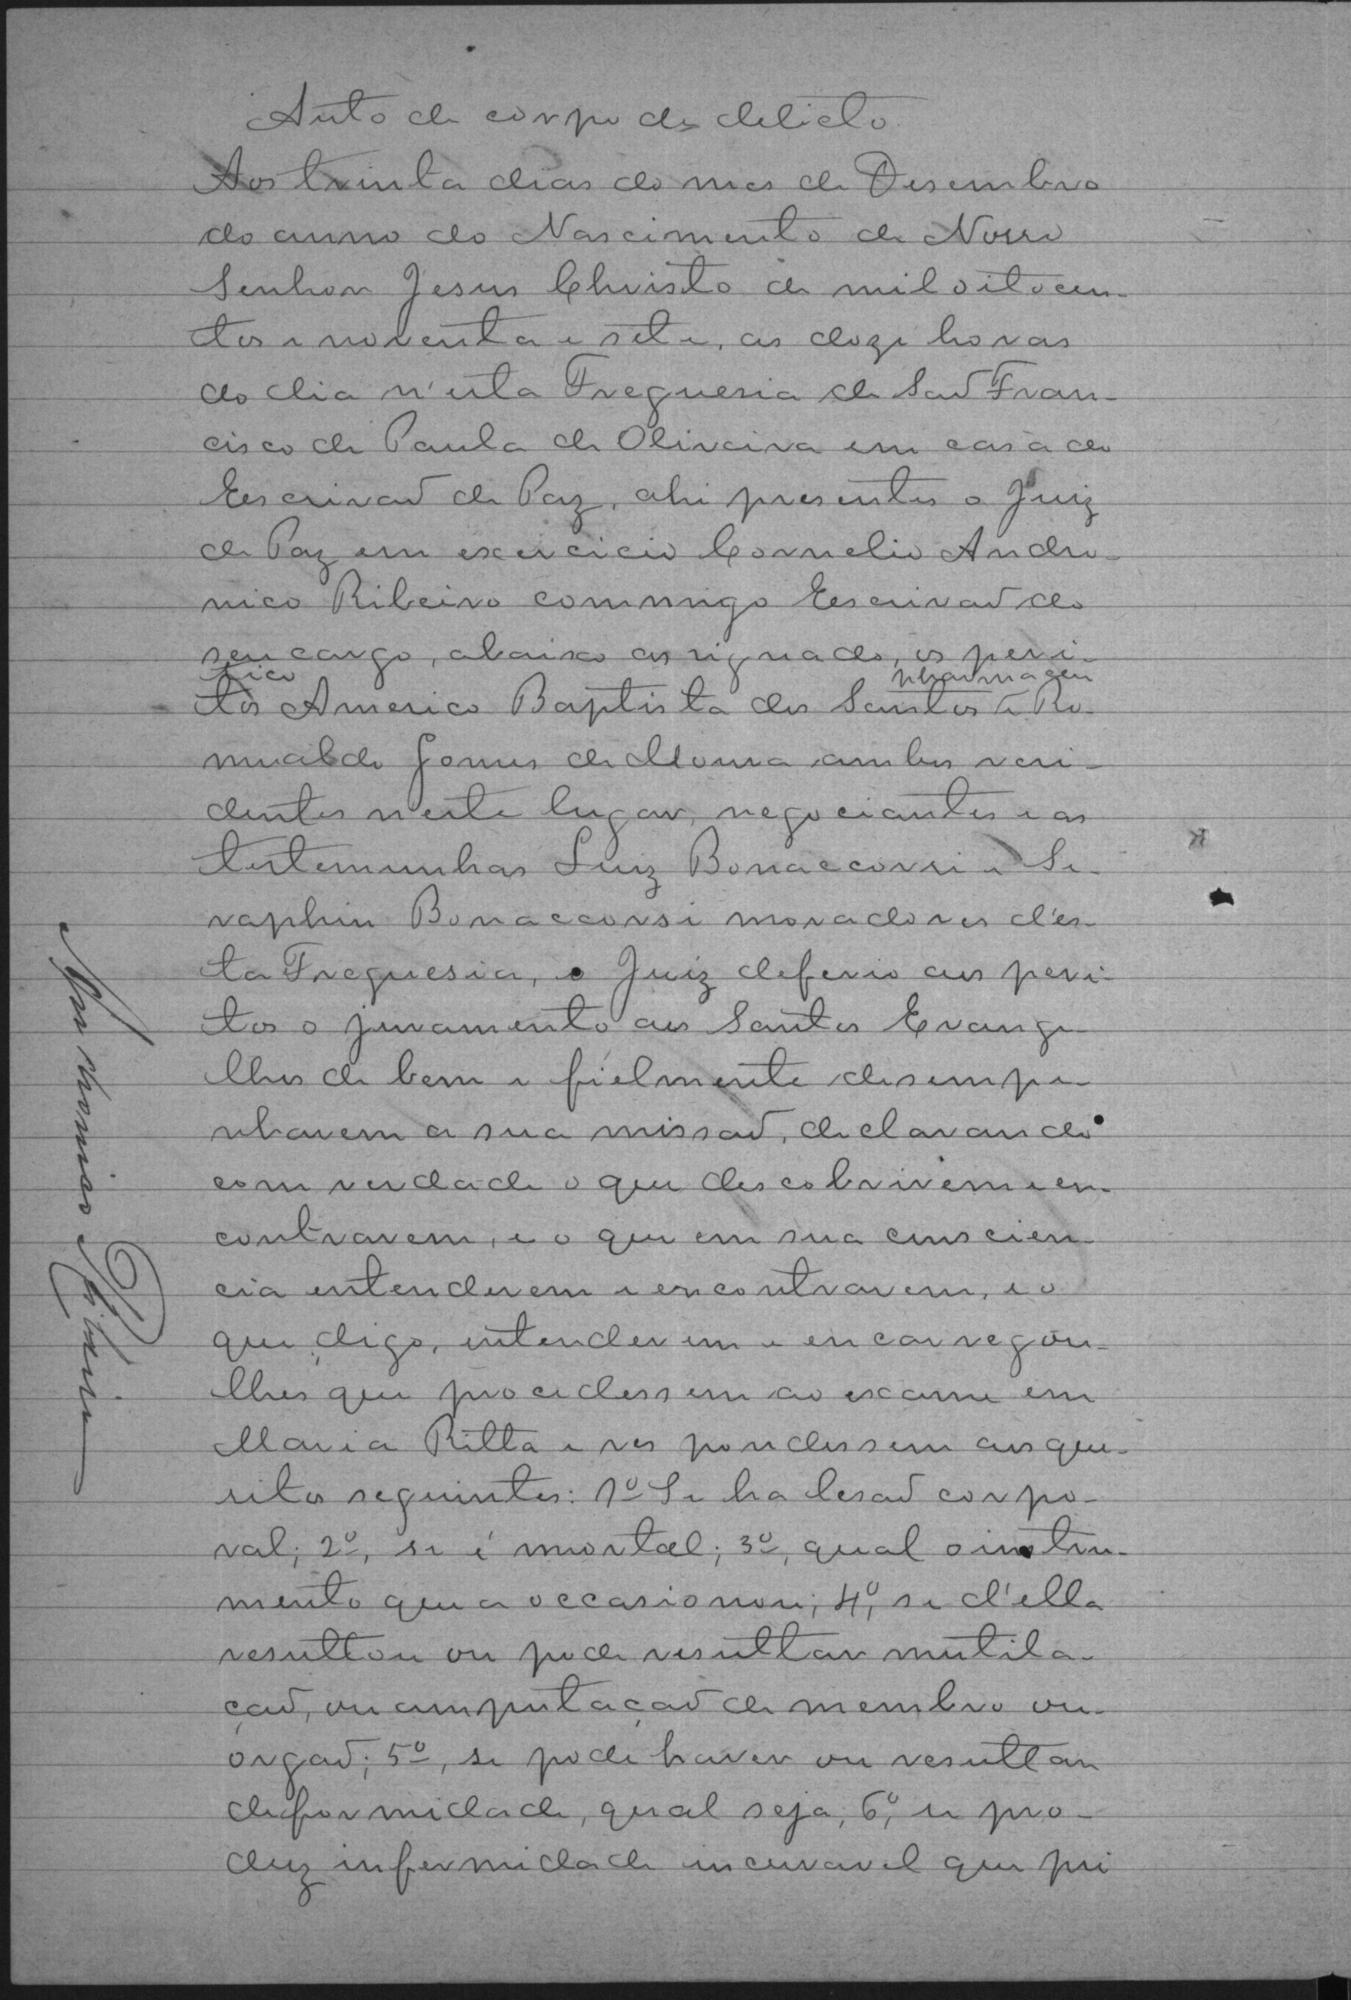 Auto de corpo de delicto
Aos trinta dias do mes de Desembro
do anno do Nascimento de Nosso
Senhor Jesus Christo de mil oitocen-
tos e noventa e sete, as doze horas
do dia n'esta Freguesia de Saõ Fran-
cisco de Paula de Oliveira em casa do
Escrivaõ de Paz, ahi presentes o Juiz
de Paz em exercicio Cornelio Andro-
nico Ribeiro commigo Escrivaõ do
seu cargo, abaixo assignado, os peri-
tico pharmaceu
tos Americo Baptista dos Santos e Ro-
mualdo Gomes de Moura ambos resi-
dentes n'este lugar, negociantes e as
testemunhas Luiz Bonaccorsi e Se-
raphim Bonaccorsi moradores d'es-
ta Freguesia, o Juiz deferio aos peri-
tos o juramento aos Santos Evange-
lhos de bem e fielmente desempe-
nharem a sua missaõ, declarando
com verdade o que descobrirem e en-
contrarem, e o que em sua conscien-
cia entenderem e encontrarem, e o
que digo, entenderem e encarregou-
lhes que procedessem ao exame em
Maria Ritta e respondessem aos que-
sitos seguintes: 1º Se ha lesaõ corpo-
ral; 2º, se é mortal; 3º, qual o instru-
mento que a occasionou; 4º, se d'ella
resultou ou pode resultar mutila-
çaõ, ou amputaçaõ de membro ou
orgaõ; 5º, se pode haver ou resultar
deformidade, qual seja; 6º, se pro-
duz infermidade incuravel que pri